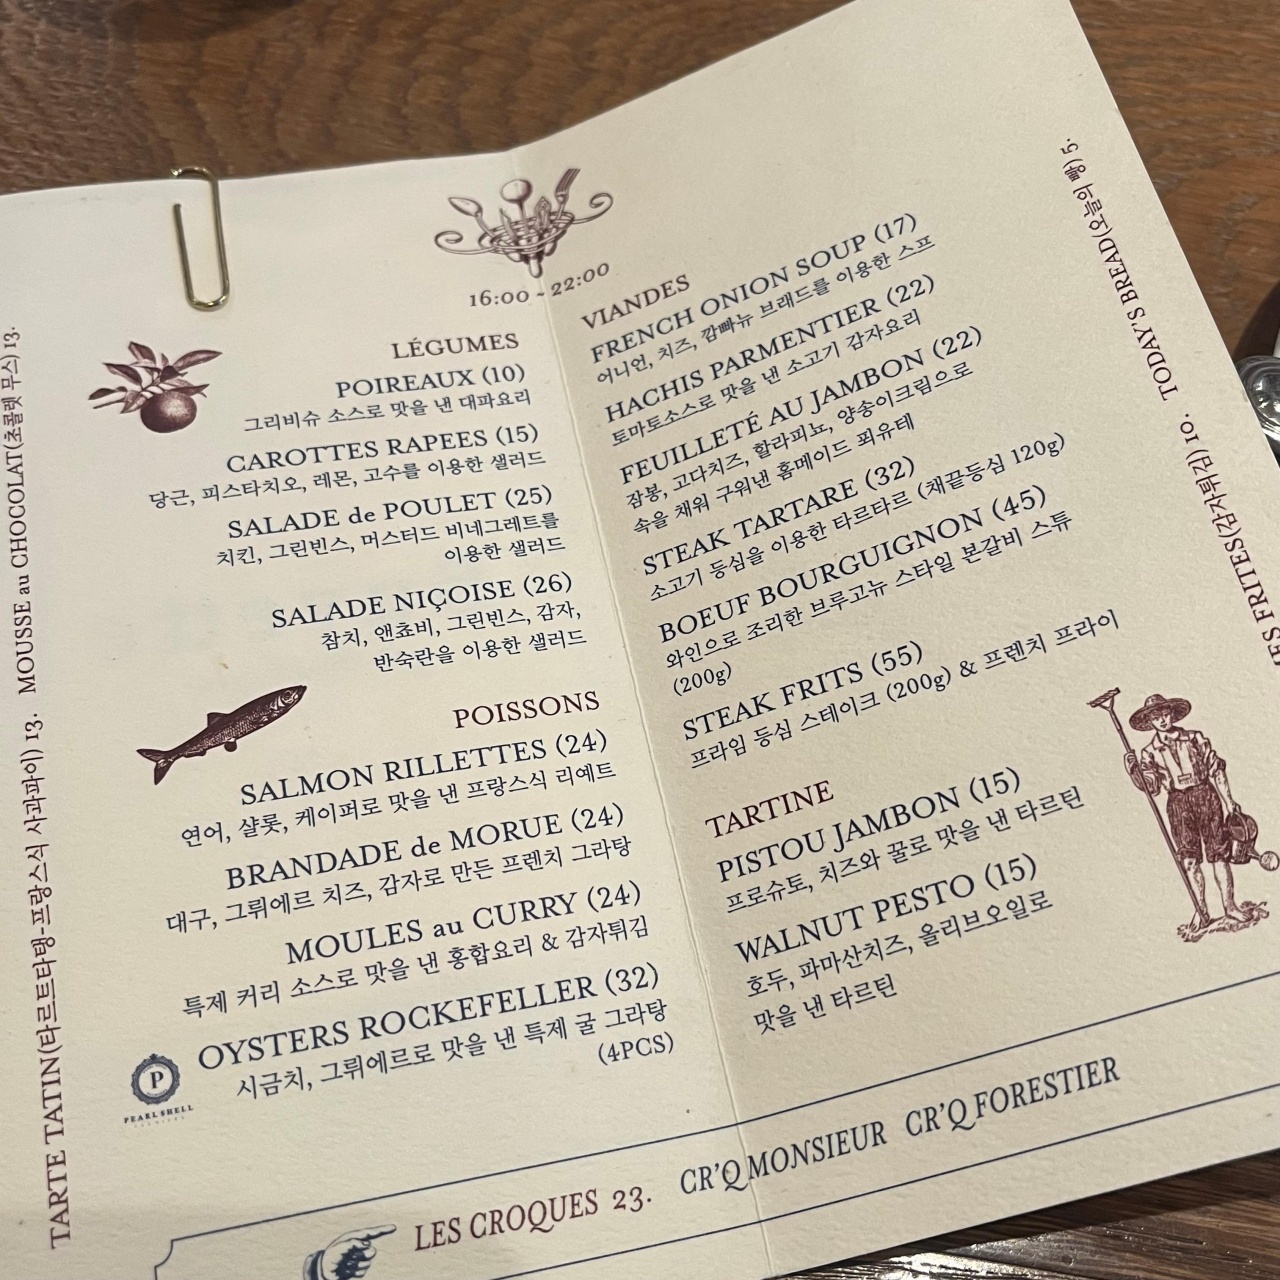 16:00 - 22:00
LÉGUMES
POIREAUX (10)
그리비슈 소스로 맛을 낸 대파요리
CAROTTES RAPEES (15)
당근, 피스타치오, 레몬, 고수를 이용한 샐러드
SALADE de POULET (25)
치킨, 그린빈스, 머스터드 비네그레트를
이용한 샐러드
SALADE NIÇOISE (26)
참치, 앤쵸비, 그린빈스, 감자,
반숙란을 이용한 샐러드
POISSONS
SALMON RILLETTES (24)
연어, 샬롯, 케이퍼로 맛을 낸 프랑스식 리예트
BRANDADE de MORUE (24)
대구, 그뤼에르 치즈, 감자로 만든 프렌치 그라탕
MOULES au CURRY (24)
특제 커리 소스로 맛을 낸 홍합요리 & 감자튀김
OYSTERS ROCKEFELLER (32)
시금치, 그뤼에르로 맛을 낸 특제 굴 그라탕
(4PCS)
P
PEARL SHELL
VIANDES
FRENCH ONION SOUP (17)
어니언, 치즈, 깜빠뉴 브래드를 이용한 스프
HACHIS PARMENTIER (22)
토마토소스로 맛을 낸 소고기 감자요리
FEUILLETÉ AU JAMBON (22)
잠봉, 고다치즈, 할라피뇨, 양송이크림으로
속을 채워 구워낸 홈메이드 푀유테
STEAK TARTARE (32)
소고기 등심을 이용한 타르타르 (채끝등심 120g)
BOEUF BOURGUIGNON (45)
와인으로 조리한 브루고뉴 스타일 본갈비 스튜
(200g)
STEAK FRITS (55)
프라임 등심 스테이크 (200g) & 프렌치 프라이
TARTINE
PISTOU JAMBON (15)
프로슈토, 치즈와 꿀로 맛을 낸 타르틴
WALNUT PESTO (15)
호두, 파마산치즈, 올리브오일로
맛을 낸 타르틴
LES CROQUES 23. CR'Q MONSIEUR CR'Q FORESTIER
TARTE TATIN(타르트타탱-프랑스식 사과파이) 13. MOUSSE au CHOCOLAT(초콜렛 무스) 13.
FRITES(감자튀김) 10. TODAY'S BREAD(오늘의 빵) 5.